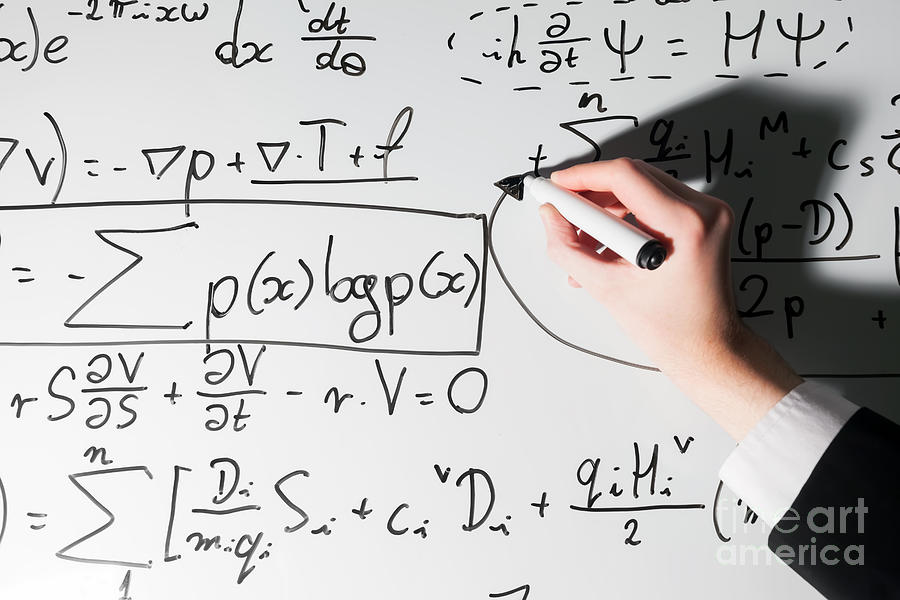 x)e^-2πixω dx dt/dθ iħ ∂/∂t Ψ = HΨ
∇v) = -∇p + ∇·T + f
+ n Σ q_i/ H_i^M + c_s
= -Σ p(x) log p(x)
(p-D)/2p +
rS ∂V/∂S + ∂V/∂t - r·V = 0
) = n Σ 1 [D_i/m_i q_i S_i + c_i^v D_i + q_i H_i^v/2 (
fine art
america